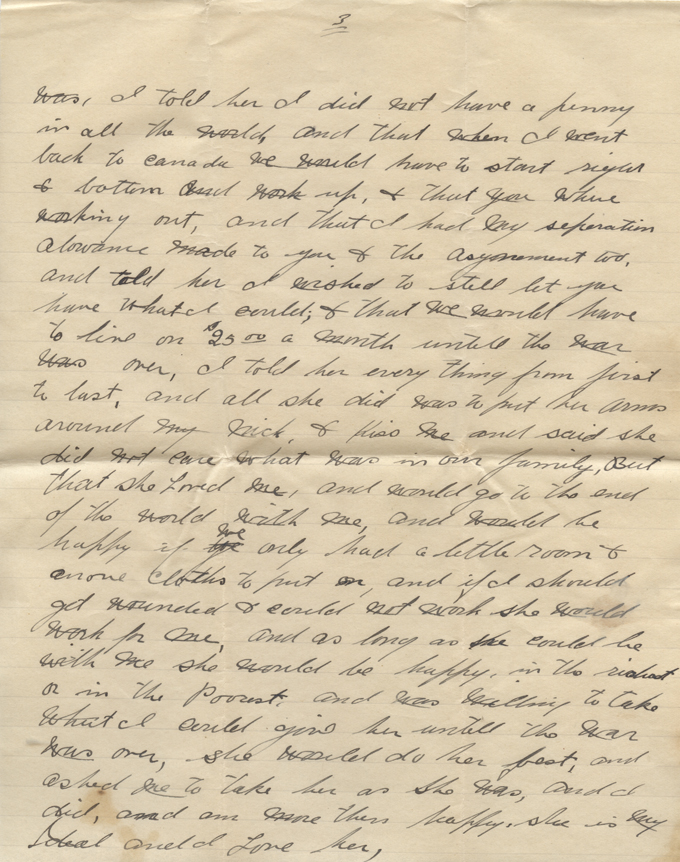 3
was, I told her I did not have a penny
in all the world, and that when I went
back to canada we would have to start right
& bottom and work up, & that you where
working out, and that I had my seperation
alowance made to you & the asynement too,
and told her I wished to still let you
have what I could; & that we would have
to live on $25 00 a month untill the war
was over, I told her every thing from first
to last, and all she did was to put her arms
around my nick, & kiss me and said she
did not care what was in our family, But
that she Loved me, and would go to the end
of the world with me, and would be
happy if we only had a little room &
cloths to put on, and if I should
get wounded & could not work she would
work for me, and as long as she could be
with me she would be happy, in the richest
or in the Poorest. and was willing to take
what I could give her untill the war
was over, she would do her best, and
asked me to take her as she was, and I
did, and am more then happy. she is my
Ideal and I Love her,